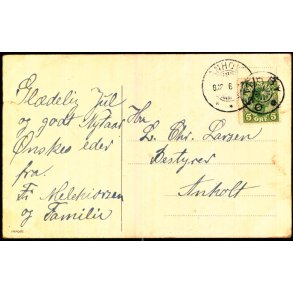 Glædelig Jul
og godt Nytaar
Ønskes eder
fra.
Fr Melchiorsen
og Familie
Hr.
L. Chr. Larsen
Bestyrer
Anholt
ANHOLT
5 ØRE 5